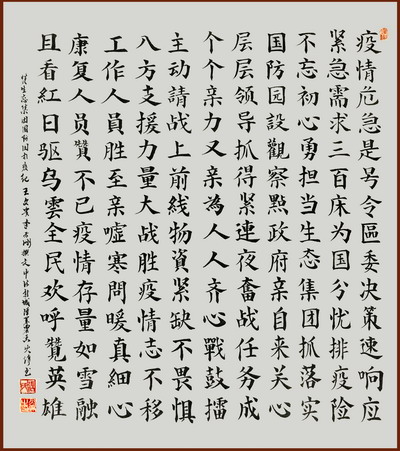 疫情危急是号令區委决策速响应
紧急需求三百床为国分忧排疫险
不忘初心勇担当生态集团抓落实
国防园設觀察點政府亲自来关心
层层领导抓得紧連夜奮战任务成
个个亲力又亲為人人齐心戰鼓擂
主动請战上前线物資紧缺不畏惧
八方支援力量大战胜疫情志不移
工作人員胜至亲嘘寒問暖真細心
康复人员贊不已疫情存量如雪融
且看紅日驱乌雲全民欢呼贊英雄